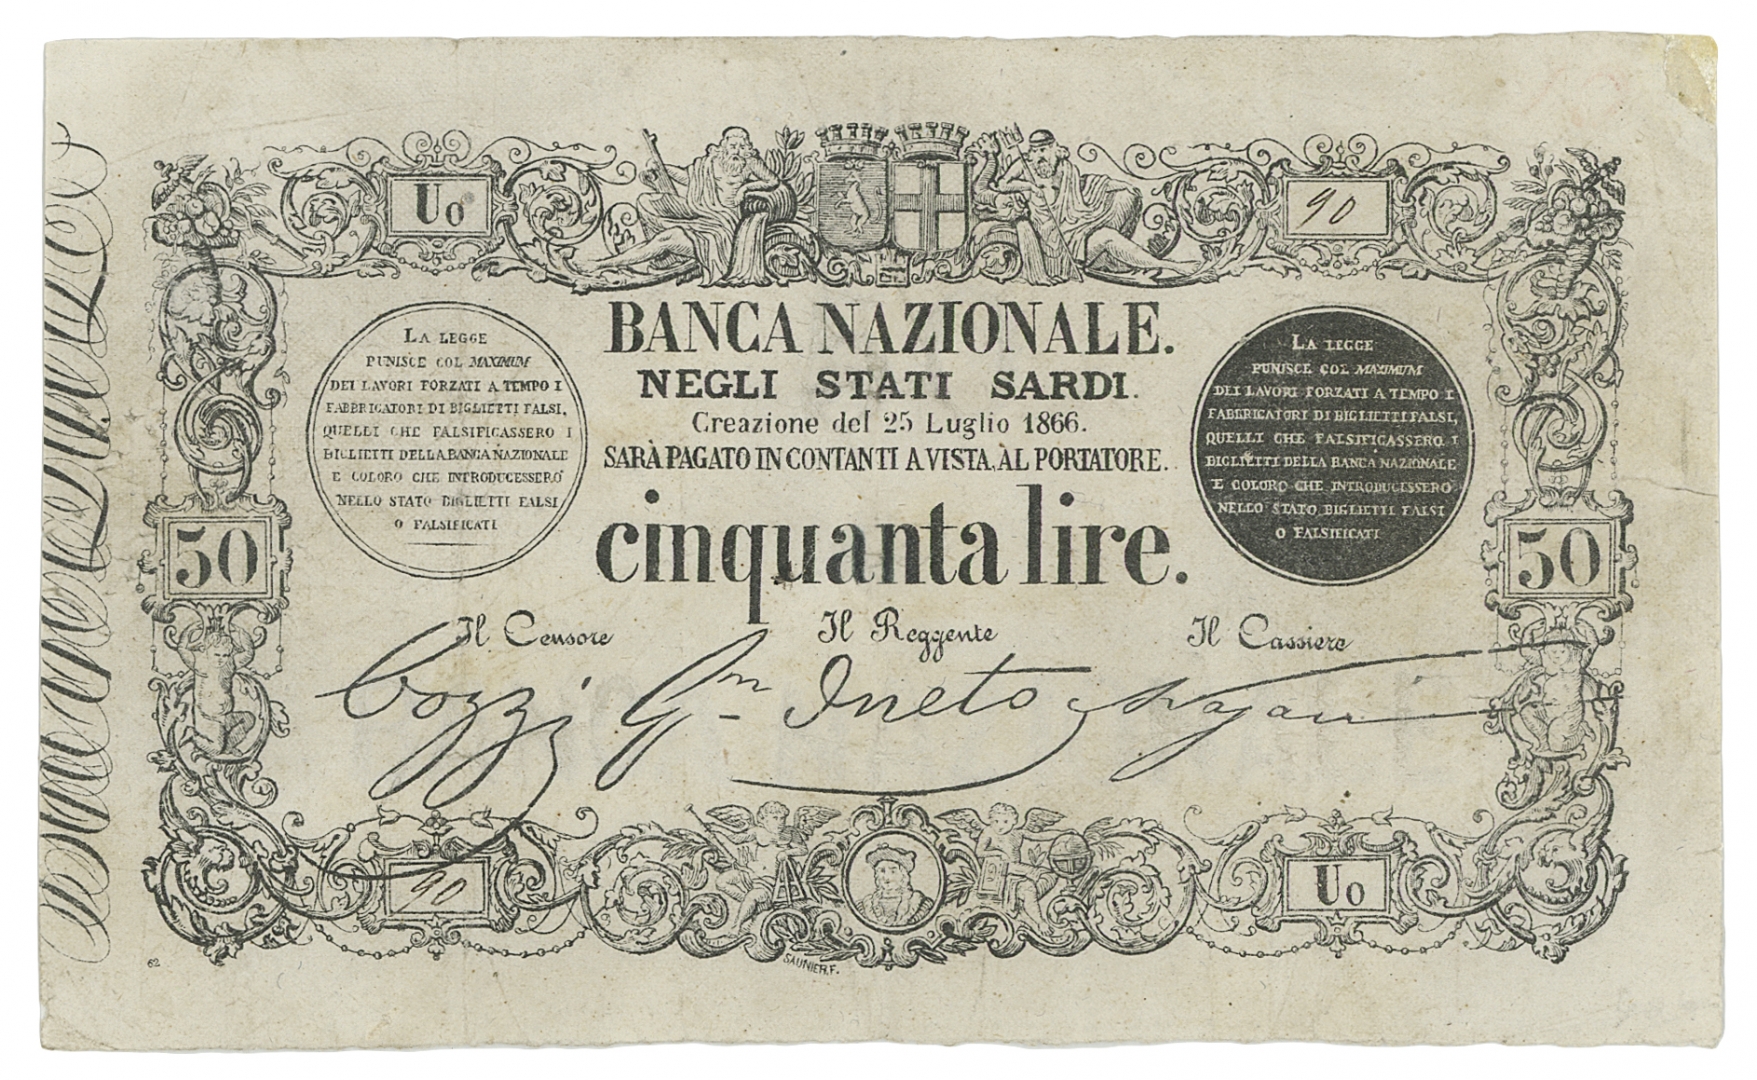 Uo
90
BANCA NAZIONALE.
NEGLI STATI SARDI.
Creazione del 25 Luglio 1866.
SARÀ PAGATO IN CONTANTI A VISTA, ÀL PORTATORE.
cinquanta lire.
LA LEGGE
PUNISCE COL MAXIMUM
DEI LAVORI FORZATI A TEMPO I
FABBRICATORI DI BIGLIETTI FALSI,
QUELLI CHE FALSIFICASSERO I
BIGLIETTI DELLA BANCA NAZIONALE
E COLORO CHE INTRODUCESSERO
NELLO STATO BIGLIETTI FALSI
O FALSIFICATI
LA LEGGE
PUNISCE COL MAXIMUM
DEI LAVORI FORZATI A TEMPO I
FABBRICATORI DI BIGLIETTI FALSI,
QUELLI CHE FALSIFICASSERO I
BIGLIETTI DELLA BANCA NAZIONALE
E COLORO CHE INTRODUCESSERO
NELLO STATO BIGLIETTI FALSI
O FALSIFICATI
50
50
Il Censore
Il Reggente
Il Cassiere
90
Uo
62
SAUNIER.F.